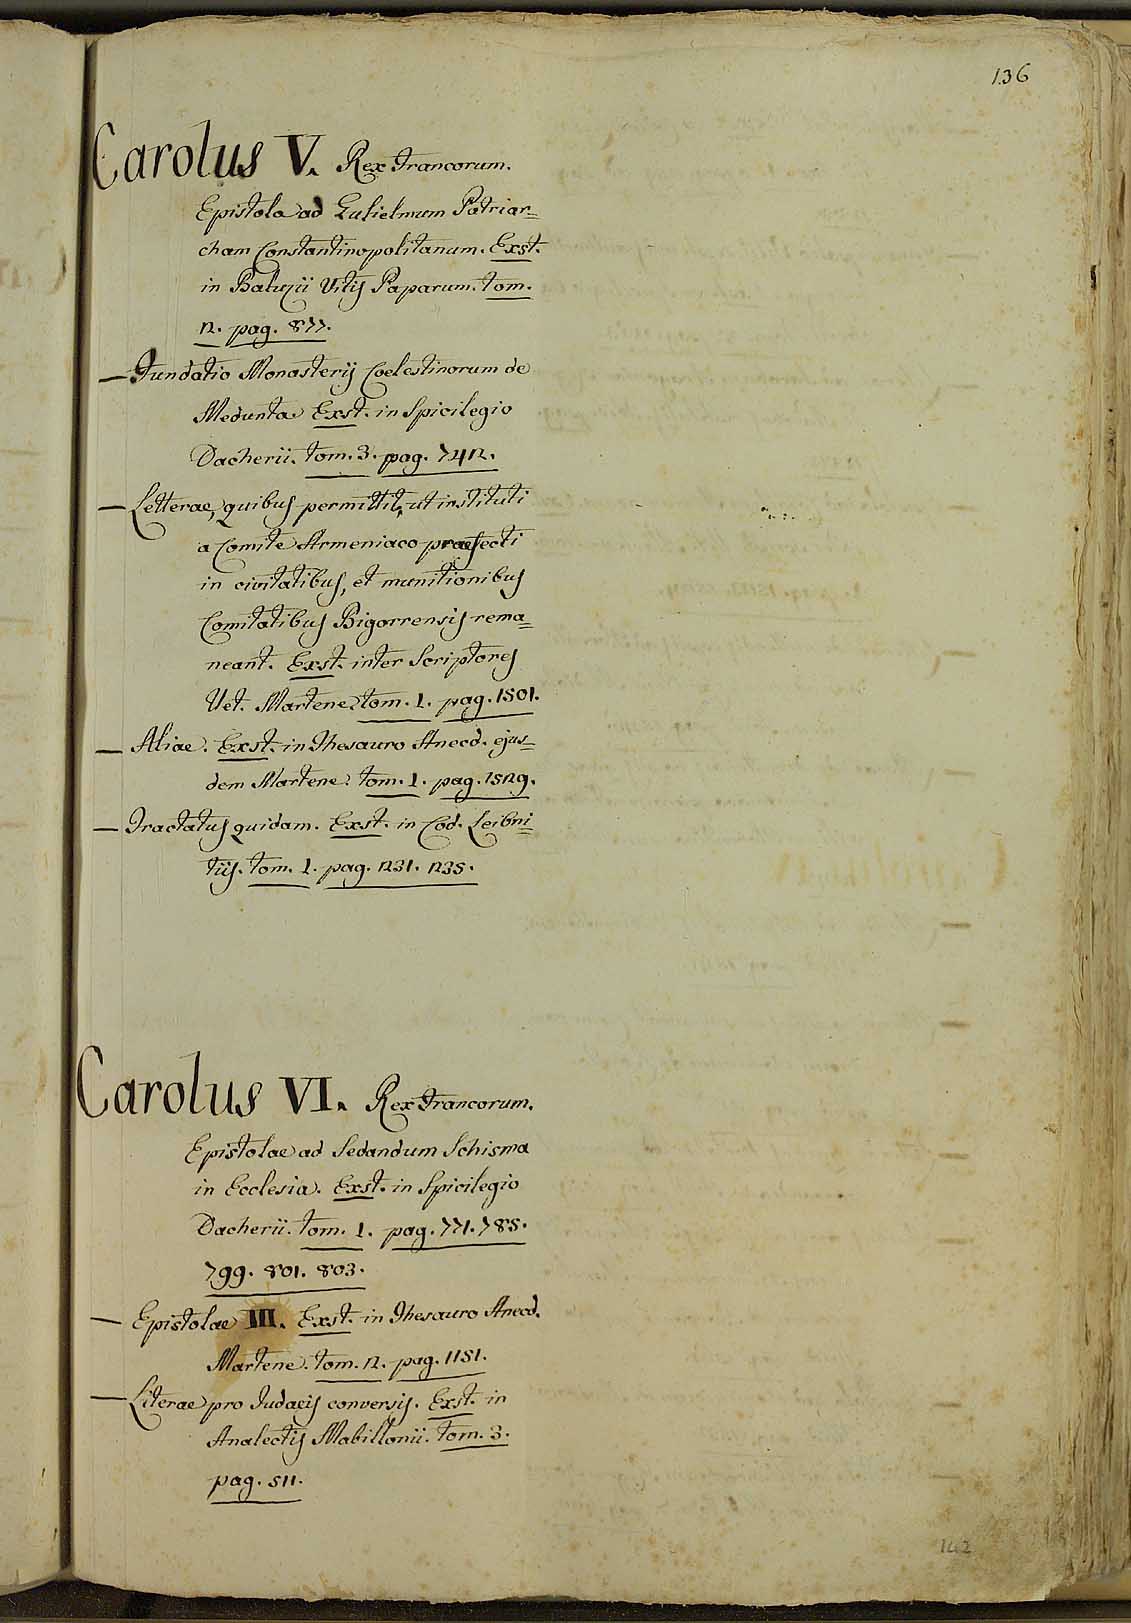 136
Carolus V. Rex Francorum.
Epistola ad Gulielmum Patriar=
cham Constantinopolitanum. Exst.
in Baluzii Vitis Paparum. tom.
2. pag. 877.
— Fundatio Monasterij Coelestinorum de
Medunta Exst. in Spicilegio
Dacherii. tom. 3. pag. 742.
— Letterae, quibus permittit, ut instituti
a Comite Armeniaco praefecti
in civitatibus, et munitionibus
Comitatibus Bigorrensis rema=
neant. Exst. inter Scriptores
Vet. Martene. tom. 1. pag. 1501.
— Aliae. Exst. in Thesauro Anecd. ejus=
dem Martene. tom. 1. pag. 1529.
— Tractatus quidam. Exst. in Cod. Leibni=
tiis. tom. 1. pag. 231. 235.
Carolus VI. Rex Francorum.
Epistolae ad Sedandum Schisma
in Ecclesia. Exst. in Spicilegio
Dacherii. tom. 1. pag. 771. 785.
799. 801. 803.
— Epistolae III. Exst. in Thesauro Anecd.
Martene. tom. 2. pag. 1151.
— Literae pro Judaeis conversis. Exst. in
Analectis Mabillonii. tom. 3.
pag. 511.
142